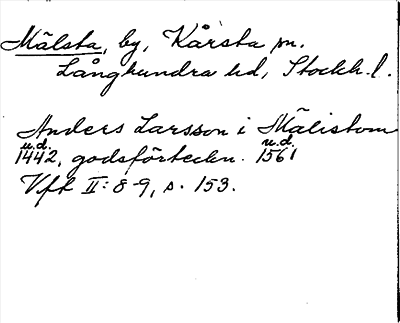 Mälsta, by, Kårsta sn.
Långhundra hd, Stockh. l.
Anders Larsson i Mälistom
u.d. u.d.
1442, godsförteckn. 1561
Vfk II: 8-9, s. 153.